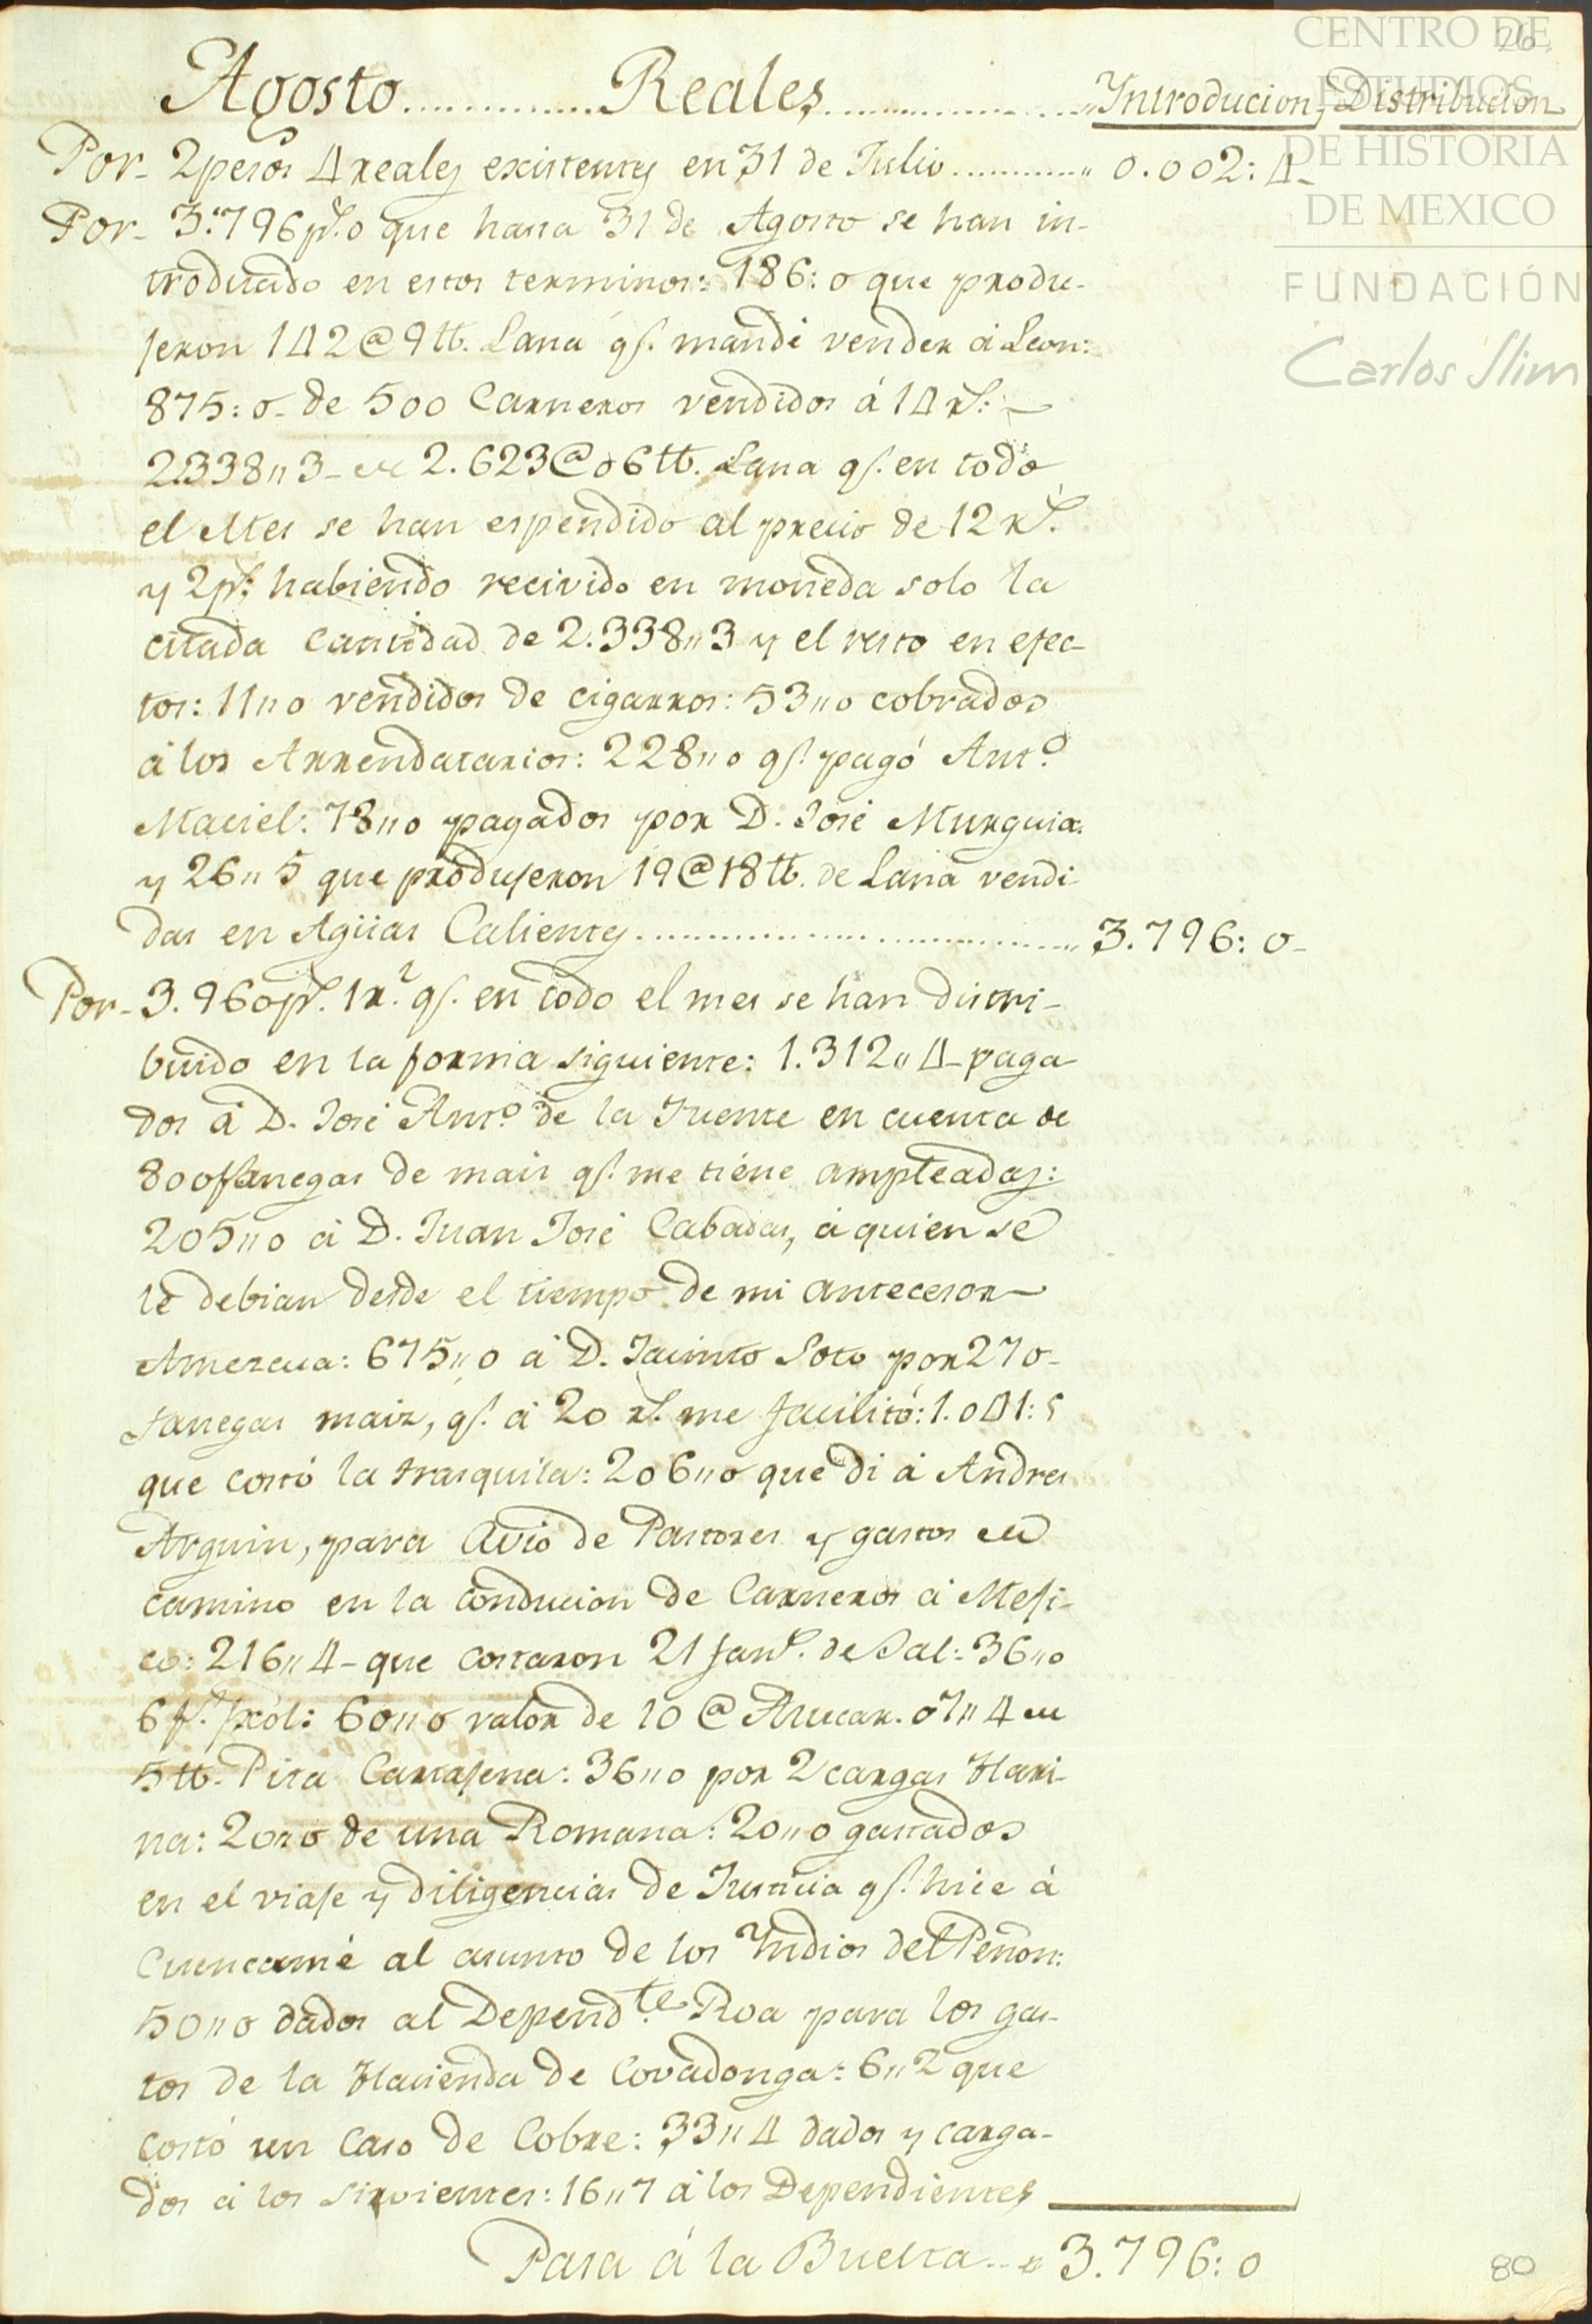 CENTRO DE
ESTUDIOS
DE HISTORIA
DE MEXICO
FUNDACIÓN
Carlos Slim
26.
Agosto............Reales..................Introducion, Distribucion
Por- 2 pesos 4 reales existentes en 31 de Julio............ 0.002: 4-
Por- 3.796 ps. 0 que hasta 31 de Agosto se han in-
troducido en estos terminos: 186: 0 que produ-
jeron 142@ 9 tt. Lana qe. mandé vender á Leon:
875: 0- de 500 Carneros vendidos á 14 rs.
2338,, 3- de 2.623@ 06 tt. Lana qe. en todo
el Mes se han espendido al precio de 12 rs.
y 2 ps. habiendo recivido en moneda solo la
citada cantidad de 2.338,, 3 y el resto en efec-
tos: 11,, 0 vendidos de cigarros: 53,, 0 cobrados
á los Arrendatarios: 228,, 0 qe. pagó Anto.
Maciel: 78,, 0 pagados por D. José Murguia.
y 26,, 5 que produjeron 19@ 18 tt. de Lana vendi-
das en Agüas Calientes........................ 3.796: 0-
Por- 3.960 ps. 1 rl. qe. en todo el mes se han distri-
buido en la forma siguiente: 1.312,, 4- paga
dos á D. José Anto. de la Fuente en cuenta de
800 fanegas de mais qe. me tiene ampleadas:
205,, 0 á D. Juan José Cabadas, á quien se
le debian desde el tiempo de mi antecesor
Amezcua: 675,, 0 á D. Jacinto Soto por 270-
fanegas maiz, qe. á 20 rs. me facilitó: 1.041: 5
que costó la trasquila: 206,, 0 que di á Andres
Arguin, para avio de Pastores y gastos de
camino en la conducion de Carneros á Meji-
co: 216,, 4- que costaron 21 fans. de Sal: 36,, 0
6 fs. frxol: 60,, 0 valor de 10 @ Asucar. 07,, 4 de
5 tt. Pita Cartajena: 36,, 0 por 2 cargas Hari-
na: 20,, 0 de una Romana: 20,, 0 gastados
en el viaje y diligencias de Justicia qe. hice á
Cuencamé al asunto de los Yndios del Peñon:
50,, 0 dados al Dependte. Roa para los gas-
tos de la Hacienda de Covadonga: 6,, 2 que
costó un Caso de Cobre: 33,, 4 dados y carga-
dos á los sirvientes: 16,, 7 á los Dependientes
Pasa á la Buelta.. 3.796: 0
80